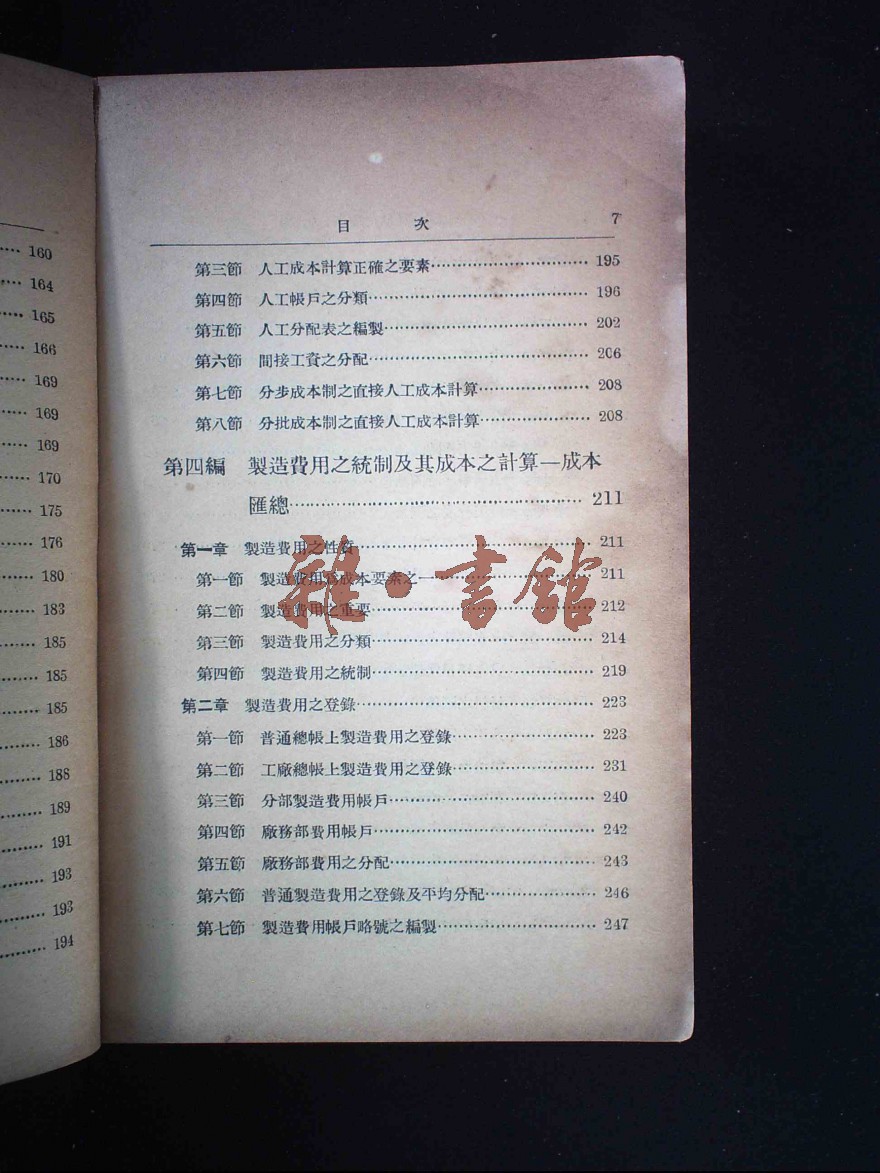 160
164
165
166
169
169
169
170
175
176
180
183
185
185
185
186
188
189
191
193
193
194
目 次 7
第三節 人工成本計算正確之要素 195
第四節 人工帳戶之分類 196
第五節 人工分配表之編製 202
第六節 間接工資之分配 206
第七節 分步成本制之直接人工成本計算 208
第八節 分批成本制之直接人工成本計算 208
第四編 製造費用之統制及其成本之計算—成本
匯總 211
第一章 製造費用之性質 211
第一節 製造費用爲成本要素之一 211
第二節 製造費用之重要 212
第三節 製造費用之分類 214
第四節 製造費用之統制 219
第二章 製造費用之登錄 223
第一節 普通總帳上製造費用之登錄 223
第二節 工廠總帳上製造費用之登錄 231
第三節 分部製造費用帳戶 240
第四節 廠務部費用帳戶 242
第五節 廠務部費用之分配 243
第六節 普通製造費用之登錄及平均分配 246
第七節 製造費用帳戶略號之編製 247
雜·書館